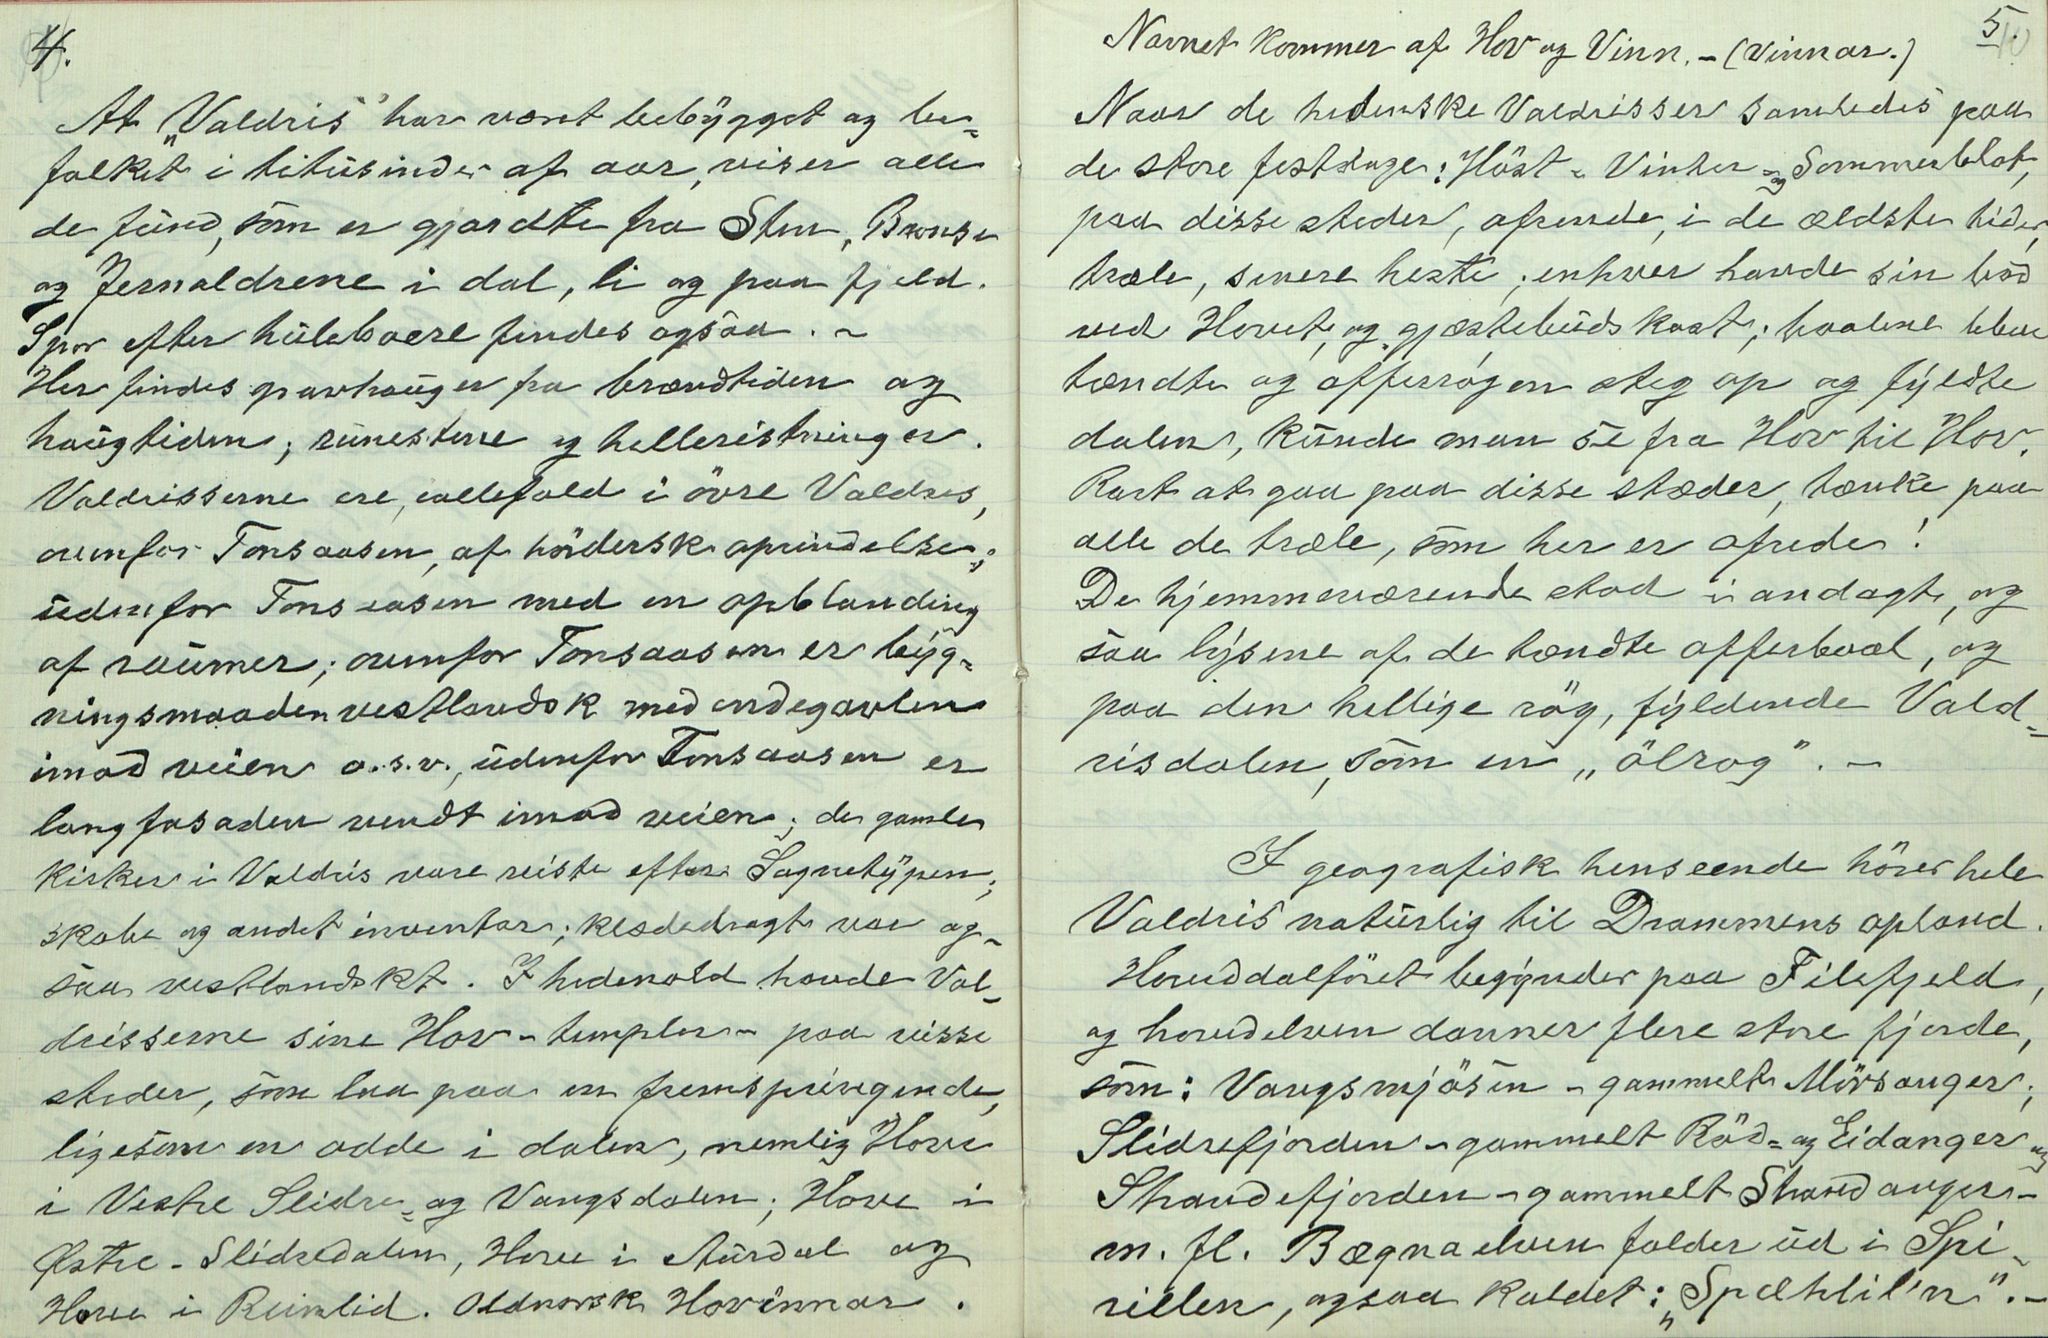 4.
At „Valdris" har været bebygget og be-
folket i titusinder af aar, viser alle
de fund, som er gjordte fra Sten, Bronse
og Jernaldrene i dal, li og paa fjeld.
Spor efter huleboere findes ogsaa. -
Her findes gravhauger fra brændtiden og
haugtiden; runestene og helleristninger.
Valdrisserne ere, iallefald i övre Valdres,
ovenfor Tonsaasen, af hördersk oprindelse;
udenfor Tonsaasen med en opblanding
af raumer; ovenfor Tonsaasen er byg-
ningsmaaden vestlandsk med endegavlen
imod veien o.s.v., udenfor Tonsaasen er
langfasaden vendt imod veien; de gamle
kirker i Valdris vare reiste efter Sognetypen;
skabe og andet inventar; klædedragt var og-
saa vestlandskt. I hedenold havde Val-
drisserne sine Hov - templer - paa visse
steder, som laa paa en fremspringende,
ligesom en odde i dalen, nemlig Hove
i Vestre Slidre- og Vangsdalen; Hove i
Østre-Slidredalen, Hove i Aurdal og
Hove i Reinlid. Oldnorsk Hovinnar.
5.
Navnet kommer af Hov og Vinn. - (vinnar.)
Naar de hedenske Valdrisser samledes paa
de store festdage: Höst- Vinter- og Sommerblot,
paa disse steder, ofrende, i de ældste tider,
træle, senere heste; enhver havde sin bod
ved Hovet, og gjæstebudskost; baalene blev
tændte og offerrøgen steg op og fyldte
dalen, kunde man se fra Hov til Hov.
Rart at gaa paa disse stæder, tænke paa
alle de træle, som her er ofrede!
De hjemmeværende stod i andagt, og
saa lysene af de tændte offerbaal, og
paa den hellige rög, fyldende Vald-
risdalen, som en „ölrog". -
I geografisk henseende hörer hele
Valdris naturlig til Drammens opland.
Hoveddalföret begynder paa Filefjeld,
og hovedelven danner flere store fjorde,
som: Vangsmjösen - gammelt Mörsanger;
Slidrefjorden - gammelt Röd- og Eidanger og
Strandefjorden - gammelt Strandanger -
m. fl. Bægnaelven falder ud i Spi-
rillen, ogsaa kaldet: „Spælilin". -